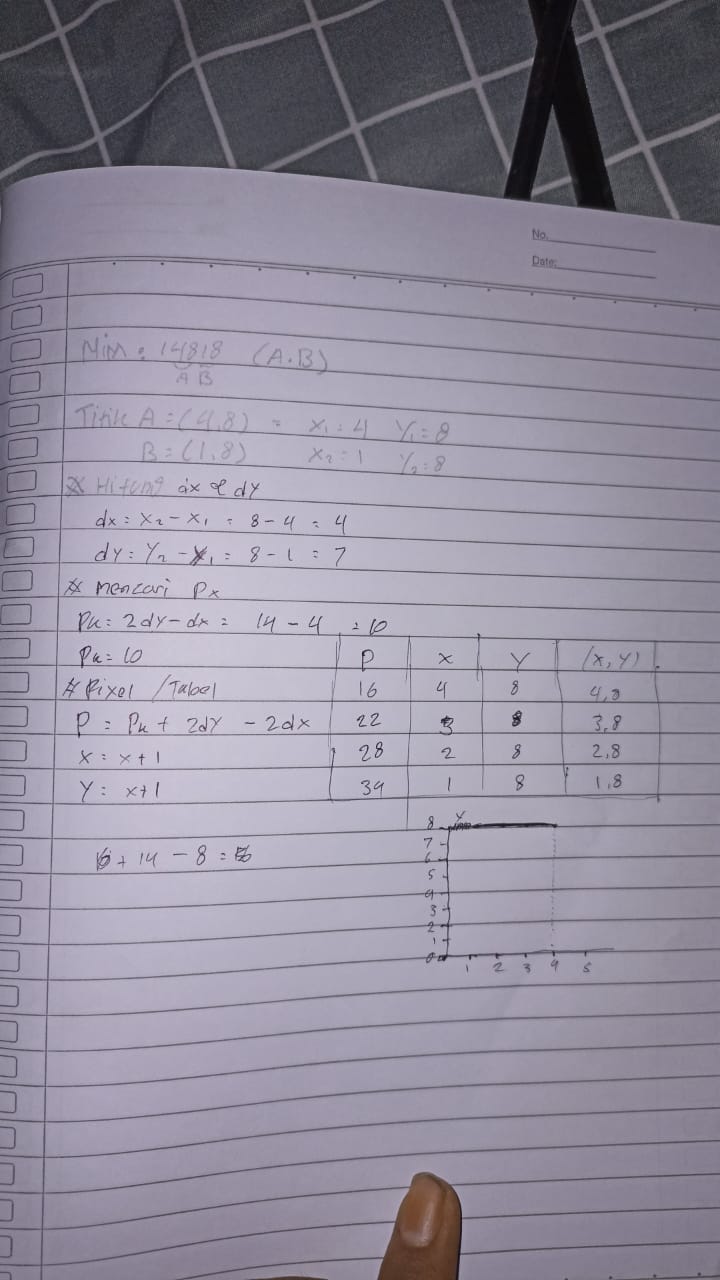 No.
Date:
Nim : 14818 (A.B)
A B
Titik A = (4,8) = X1 = 4 Y1 = 8
B = (1,8) X2 = 1 Y2 = 8
Hitung dx & dy
dx = X2 - X1 = 8 - 4 = 4
dy = Y2 - Y1 = 8 - 1 = 7
mencari Px
Pk = 2dy - dx = 14 - 4 = 10
Pk = 10
Pixel / Tabel
P = Pk + 2dy - 2dx
X = x + 1
Y = x + 1
P X Y (X,Y)
16 4 8 4,8
22 3 8 3,8
28 2 8 2,8
34 1 8 1,8
+ 14 - 8 =
Y
8
7
6
5
4
3
2
1
0
1 2 3 4 5